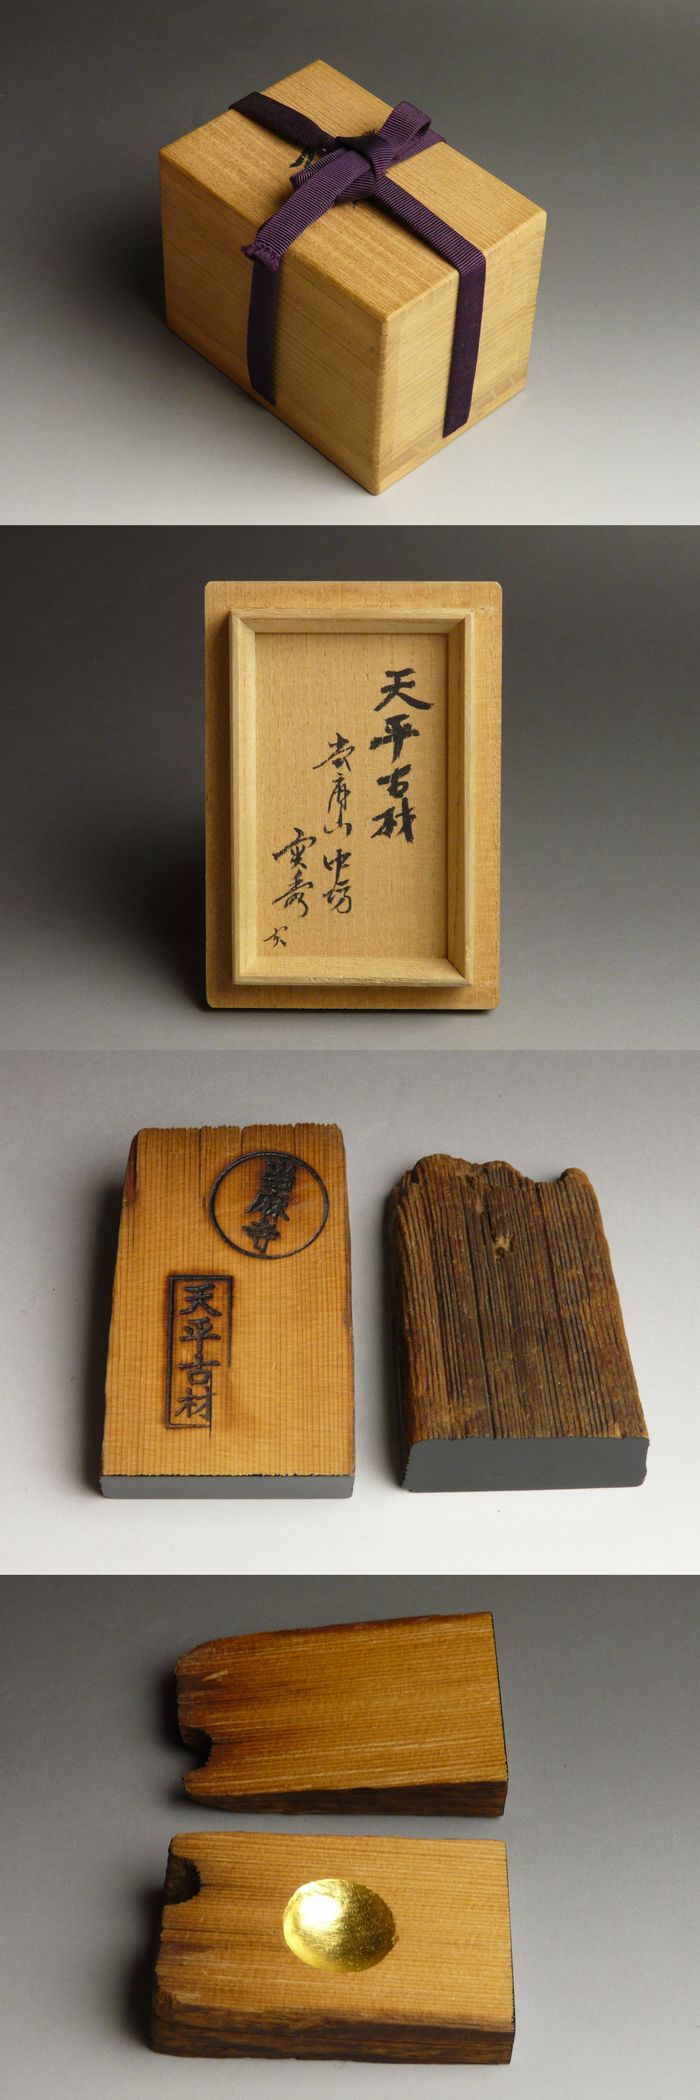 天平古材
當麻山 中坊
實秀
當麻寺
天平古材